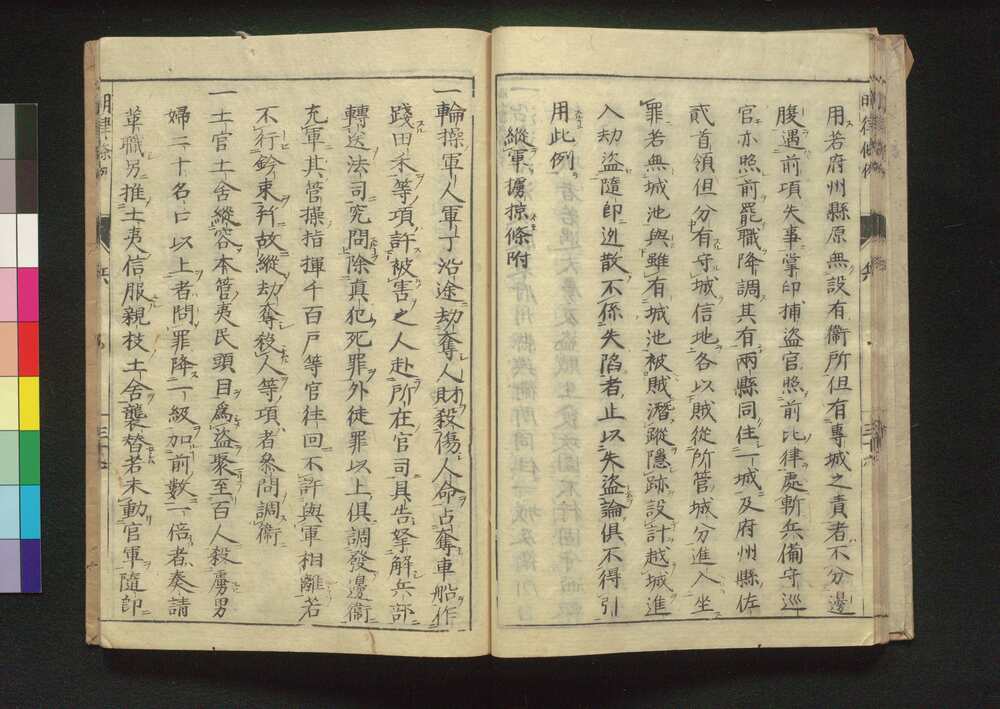 用若府州縣原無設有衞所但有專城之責者不分邊
腹遇前項失事掌印捕盜官照前比律處斬兵備守巡
官亦照前罷職降調其有兩縣同住一城及府州縣佐
貳首領但分有守城信地各以賊從所管城分進入坐
罪若無城池與雖有城池被賊潛蹤隱跡設計越城進
入劫盜隨即逃散不係失陷者止以失盜論俱不得引
用此例
縱軍擄掠條附
一輪操軍人軍丁沿途劫奪人財殺傷人命占奪車船作
踐田禾等項許被害之人赴所在官司具告拏解兵部
轉送法司究問除真犯死罪外徒罪以上俱調發邊衞
充軍其管操指揮千百戶等官往回不許與軍相離若
不行鈐束幷故縱劫奪殺人等項者叅問調衞
一土官土舍縱容本管夷民頭目爲盜聚至百人殺虜男
婦二十名口以上者問罪降一級加前數一倍者奏請
革職另推土夷信服親枝土舍襲替若未動官軍隨即
明律條例
兵